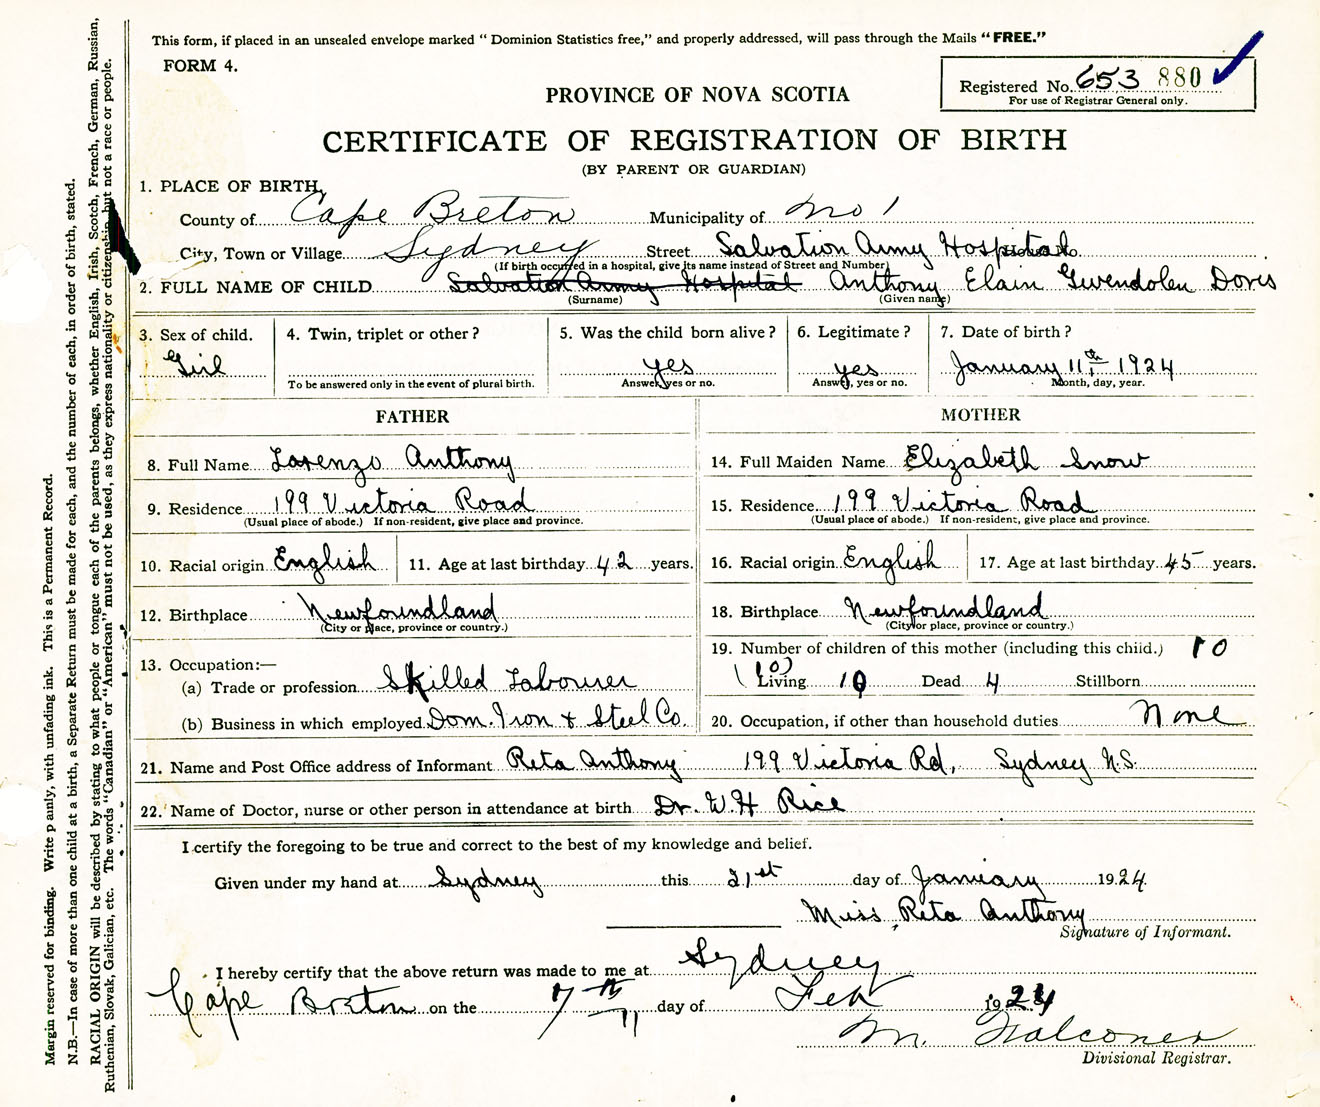 This form, if placed in an unsealed envelope marked “ Dominion Statistics free,” and properly addressed, will pass through the Mails “ FREE.”
FORM 4.
Registered No. 653 880
For use of Registrar General only.
PROVINCE OF NOVA SCOTIA
CERTIFICATE OF REGISTRATION OF BIRTH
(BY PARENT OR GUARDIAN)
1. PLACE OF BIRTH,
County of Cape Breton Municipality of No 1
City, Town or Village Sydney Street Salvation Army Hospital
(If birth occurred in a hospital, give its name instead of Street and Number)
2. FULL NAME OF CHILD Salvation Army Hospital Anthony Elain Gwendolen Doris
(Surname) (Given name)
3. Sex of child. 4. Twin, triplet or other ? 5. Was the child born alive ? 6. Legitimate ? 7. Date of birth ?
Girl yes yes January 11th 1924
To be answered only in the event of plural birth. Answer, yes or no. Answer, yes or no. Month, day, year.
FATHER MOTHER
8. Full Name Lorenzo Anthony 14. Full Maiden Name Elizabeth Snow
9. Residence 199 Victoria Road 15. Residence 199 Victoria Road
(Usual place of abode.) If non-resident, give place and province. (Usual place of abode.) If non-resident, give place and province.
10. Racial origin English 11. Age at last birthday 42 years. 16. Racial origin English 17. Age at last birthday 45 years.
12. Birthplace Newfoundland 18. Birthplace Newfoundland
(City or place, province or country.) (City or place, province or country.)
13. Occupation:— 19. Number of children of this mother (including this child.) 10
(a) Trade or profession Skilled Labourer (10) Living 10 Dead 4 Stillborn
(b) Business in which employed Dom. Iron + Steel Co. 20. Occupation, if other than household duties None
21. Name and Post Office address of Informant Reta Anthony 199 Victoria Rd, Sydney N.S.
22. Name of Doctor, nurse or other person in attendance at birth Dr. W. H Rice
I certify the foregoing to be true and correct to the best of my knowledge and belief.
Given under my hand at Sydney this 21st day of January 1924.
Miss Reta Anthony
Signature of Informant.
I hereby certify that the above return was made to me at Sydney
Cape Breton on the 7th day of Feb 1924
11
M. Falconer
Divisional Registrar.
Margin reserved for binding. Write p ainly, with unfading ink. This is a Permanent Record.
N.B.—In case of more than one child at a birth, a Separate Return must be made for each, and the number of each, in order of birth, stated.
RACIAL ORIGIN will be described by stating to what people or tongue each of the parents belongs, whether English, Irish, Scotch, French, German, Russian,
Ruthenian, Slovak, Galician, etc. The words “Canadian” or “American” must not be used, as they express nationality or citizenship but not a race or people.